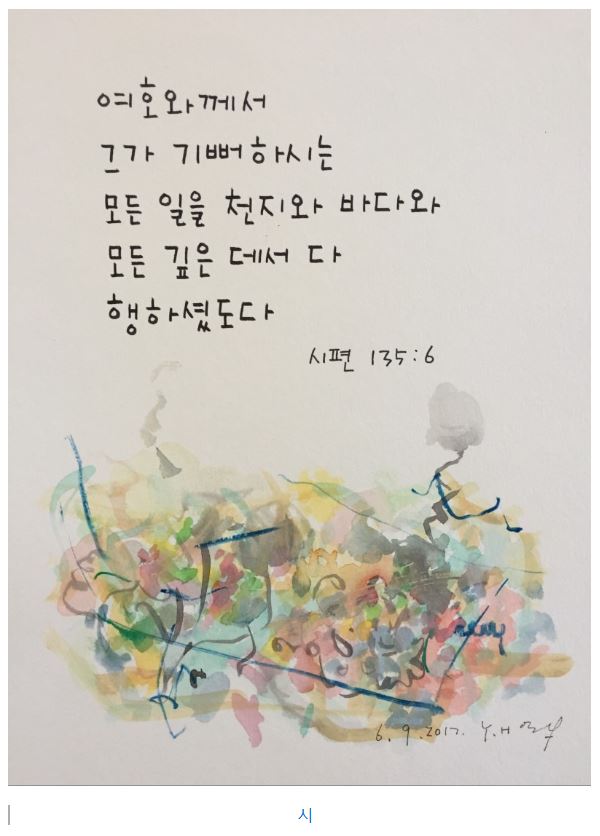 여호와께서
그가 기뻐하시는
모든 일을 천지와 바다와
모든 깊은 데서 다
행하셨도다
시편 135:6
6. 9. 2017. Y.H
시